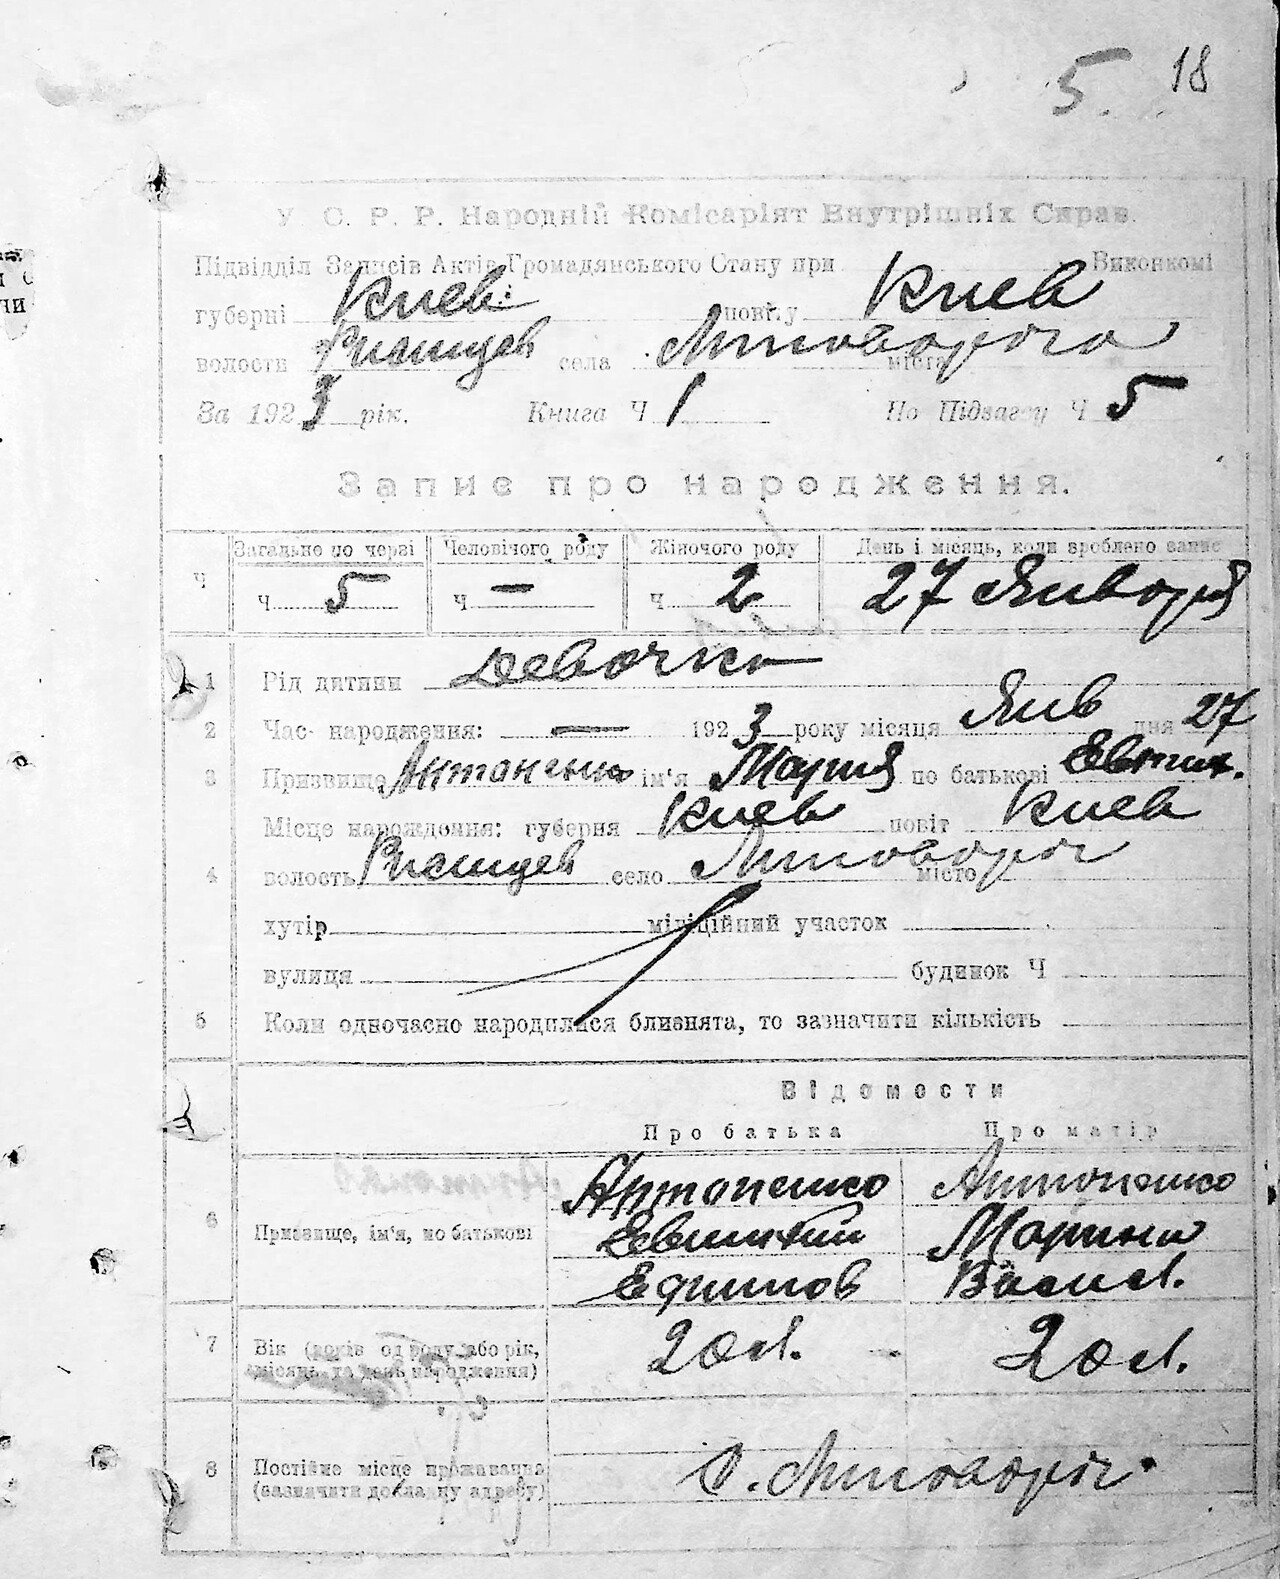 5. 18
У. С. Р. Р. Народній Комісаріят Внутрішніх Справ.
Підвідділ Записів Актів Громадянського Стану при Виконкомі
губерні Киев: повіту Киев
волости Ржищев села міста
За 1923 рік. Книга Ч 1 По Підвагсу Ч 5
Запис про народження.
Загальне по черзі Человічого роду Жіночого роду День і місяць, коли зроблено запис
Ч Ч 5 Ч — Ч 2 27 Января
1 Рід дитини Девочка
2 Час народження: — 1923 року місяця Янв дня 27
3 Призвище Антоненко ім'я Мария по батькові
Місце народження: губерня Киев повіт Киев
4 волость Ржищев село місто
хутір міліційний участок
вулиця будинок Ч
5 Коли одночасно народилися близнята, то зазначити кількість
Відомости
Про батька Про матір
Антоненко Антоненко
6 Призвище, ім'я, по батькові Евтихий Марина
Ефимов Васил.
7 Вік (років од роду або рік, 20 л. 20 л.
місяць та день народження)
8 Постійне місце проживання
(зазначити докладну адресу) С.